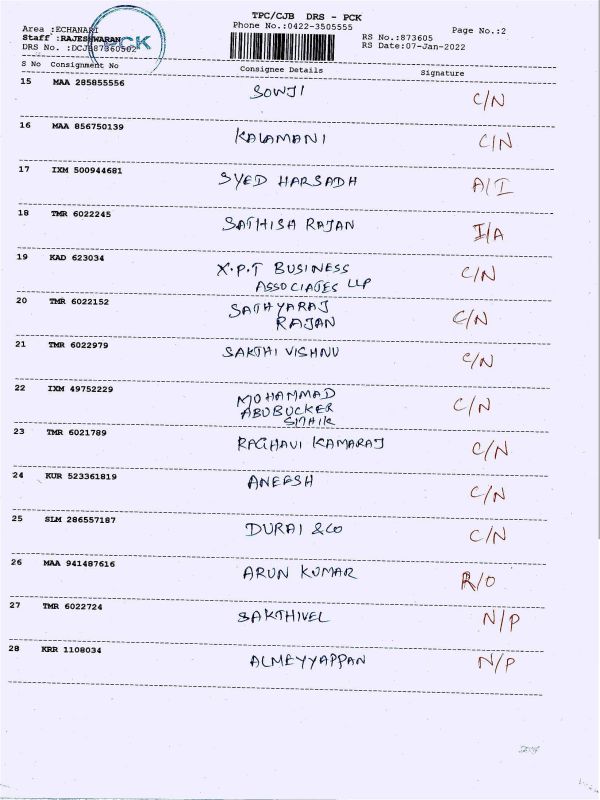 TPC/CJB DRS - PCK
Area :ECHANARI
Phone No.:0422-3505555
Page No.:2
Staff :RAJESHWARAN
RS No.:873605
DRS No. :DCJB87360502
RS Date:07-Jan-2022
PCK
S No Consignment No Consignee Details Signature
15 MAA 285855556 SOWJI C/N
16 MAA 856750139 KALAMANI C/N
17 IXM 500944681 SYED HARSADH A/I
18 TMR 6022245 SATHISH RAJAN I/A
19 KAD 623034 X.P.T BUSINESS C/N
ASSOCIATES LLP
20 TMR 6022152 SATHYARAJ C/N
RAJAN
21 TMR 6022979 SAKTHI VISHNU C/N
22 IXM 49752229 MOHAMMAD C/N
ABUBUCKER
23 TMR 6021789 RAGHAVI KAMARAJ C/N
24 KUR 523361819 ANEESH C/N
25 SLM 286557187 DURAI &CO C/N
26 MAA 941487616 ARUN KUMAR R/O
27 TMR 6022724 SAKTHIVEL N/P
28 KRR 1108034 ALMEYYAPPAN N/P